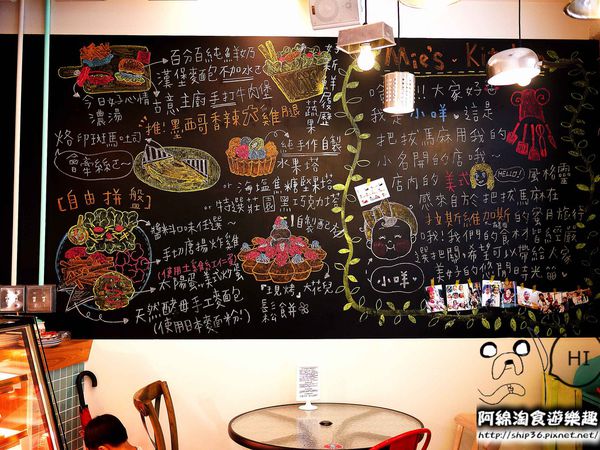 百分百純鮮奶
漢堡麵包不加水
今日好心情
濃湯
古意主廚手打牛肉堡
推!墨西哥香辣穴雞腿
烙印斑馬吐司
純手作自製
水果塔
海鹽焦糖堅果塔
特選莊園黑巧克力塔
[自由拼盤]
醬料口味任選
手切唐揚炸雞
太陽蛋.美式炒蛋
天然酵母手工麵包
(使用日本麥麵粉!)
自製配料
現烤
鬆餅
蔬果
Mie's Kit
嗨!!!大家好
我是小咩 這是
把拔馬麻用我的
小名開的店哦~
HELLO!
店內的美式 風格靈
感來自於把拔馬麻在
拉斯維加斯的蜜月旅行
哦!我們的食材皆經嚴
選把關,希望可以帶給大家
美好的休閒時光
小咩
HI
阿綿淘食遊樂趣
http://ship36.pixnet.net/